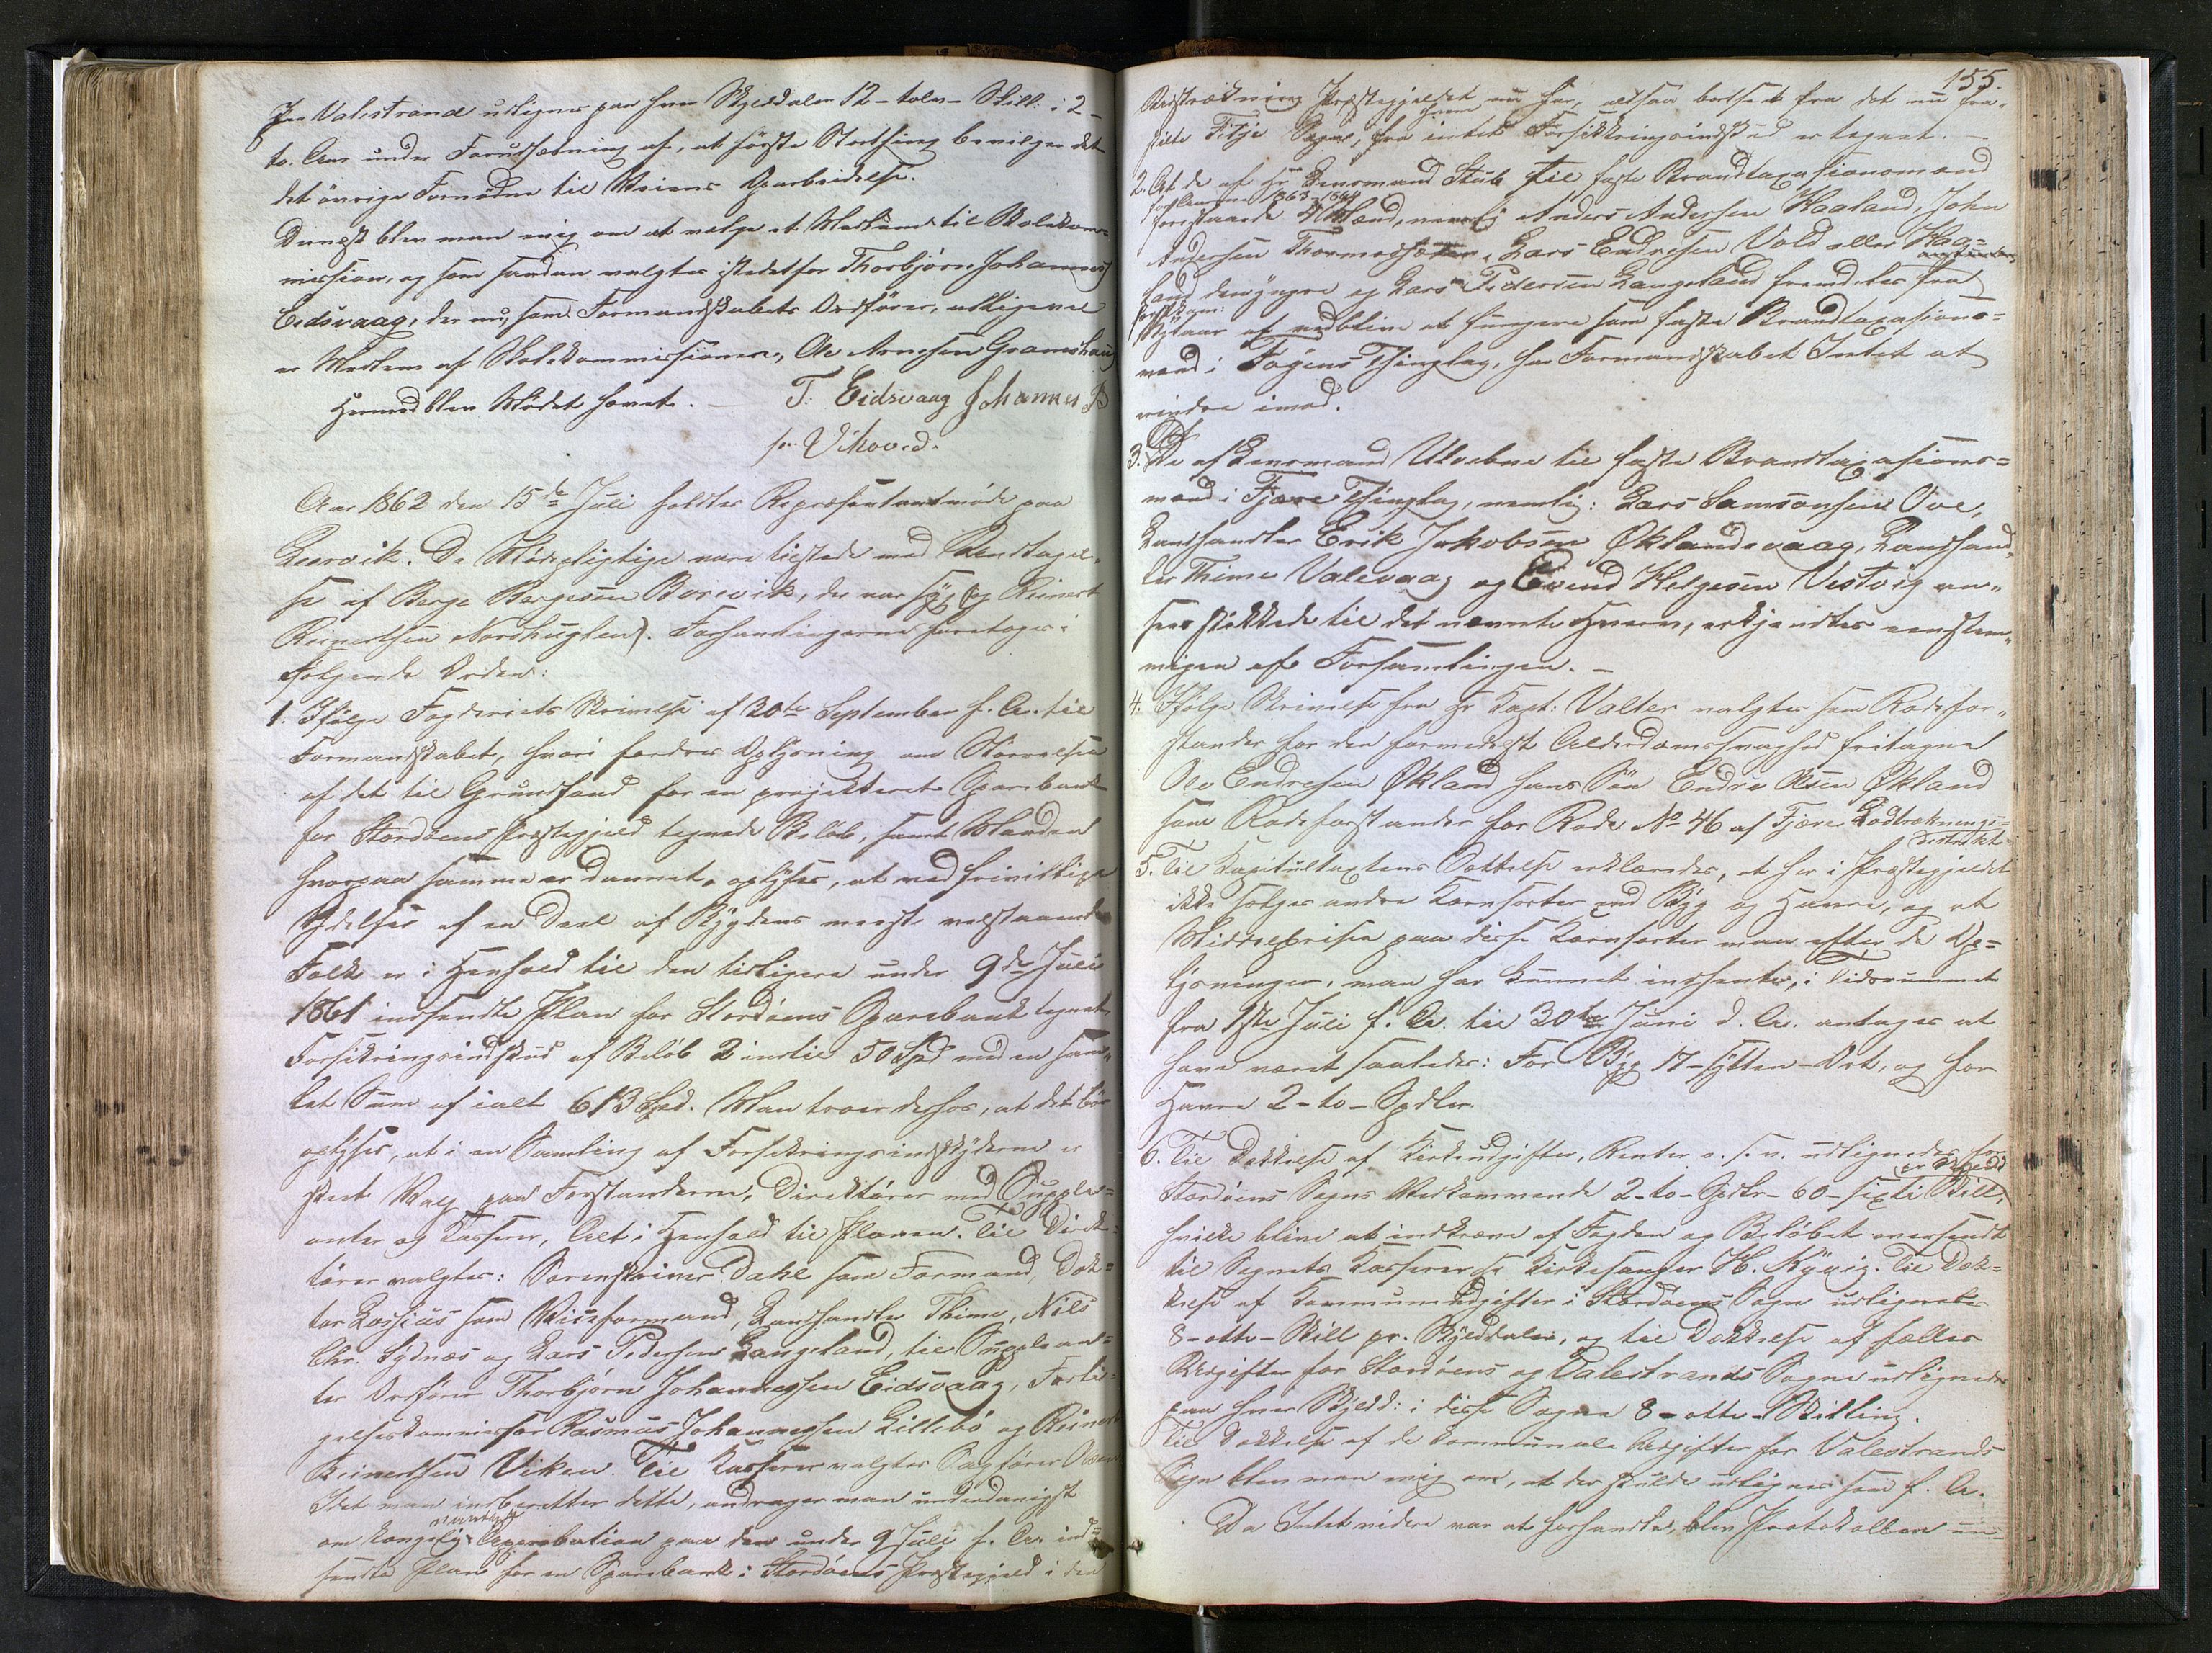 Paa Valestrand udlignes paa hver Skylddaler 12 - tolv - Skill: i 2 -
to. Aar under Forudsætning af, at første Storthing bevilger det
det øvrige Fornødne til Veiens Oparbeidelse.
Dernæst blev man enig om at vælge et Medlem til Skolekom=
mission, og som saadan valgtes istedetfor Thorbjørn Johannes
Eidsvaag, der nu, som Formandskabets Ordfører, alligevel
er Medlem af Skolekommissionen, Ole Arnesen Gramshaug
Hermed blev Mødet hævet. — T. Eidsvaag Johannes B
sen Vihovd.
Aar 1862 den 15de Juli holdtes Repræsentantmøde paa
Leervik. De Mødepligtige vare tilstede med Undtagel-
se af Berge Bergesen Borevik, der var syg og Reinert
Reinertsen Nordhuglen). Forhandlingerne foretoges i
følgende Orden:
1. Ifølge Fogderiets Skrivelse af 20de September f. A. til
Formandskabet, hvori fordres Oplysning om Størrelsen
af det til Grundfond for en projekteret Sparebank
for Stordøens Præstegjeld tegnede Beløb, samt Maaden
hvorpaa samme er dannet, oplyses, at ved frivillige
Ydelser af en Deel af Bygdens meest velstaaende
Folk er i Henhold til den tidligere under 9de Juli
1861 indsendte Plan for Stordøens Sparebank tegnet
Forsikringsindskud af Beløb 2 indtil 50 Spd med en sam-
let Sum af ialt 613 Spd. Man troer derhos, at det bør
oplyses, at i en Samling af Forsikringsindskyderne er
skeet Valg paa Forstanderne, Direktører med Supple-
anter og Kasserer, Alt i Henhold til Planen. Til Direk-
tører valgtes: Sorenskriver Dahl som Formand, Dok=
tor Lossius som Viceformand, Landhandler Thime, Nils
Chr. Sydnæs og Lars Pedersen Langeland, til Supplean=
ter Ordfører Thorbjørn Johannessen Eidsvaag, Forli-
gelseskommissær Rasmus Johannessen Lillebø og Reinert
Reinertsen Viken. Til Kasserer valgtes Sagfører
Idet man indberetter dette, andrager man underdanigst
om kongelig Approbation paa den under 9 Juli f. A. ind=
sendte Plan for en Sparebank i Stordøens Præstegjeld i den
155.
Udstrækning Præstegjeldet nu har, altsaa bortseet fra det nu fra-
skilte Fitje Sogn, fra intet Forsikkringsindskud er tegnet. —
2. At de af Hr Lensmand Stub til faste Brandtaxasionsmænd
for Aarene 1863-1864
foreslaaede 4 Mænd, nemlig Anders Andersen Haaland, John
Andersen Thormodsæter, Lars Endresen Vold eller Haa=
land den yngre og Lars Pedersen Langeland fremdeles fra
Nytaar af vedblive at fungere som faste Brandtaxasions=
mænd i Føyens Thinglag, har Formandskabet Intet at
erindre imod.
3. De af Lensmand Ulvebne til faste Brandtaxasions=
mænd i Fjære Thinglag, nemlig: Lars Samsonsen Ove,
Landhandler Erik Jakobsen Øklandsvaag, Landhand-
ler Thime Valevaag og Eivind Helgesen Vestvig an-
sees skikkede til det nævnte Hverv, erkjendtes eenstem-
migen af Forsamlingen. —
4. Ifølge Skrivelse fra Hr Kapt: Valter valgtes som Rodefor-
stander for den formedelst Alderdomssvaghed fritagne
Ole Endresen Økland hans Søn Endre Olsen Økland
som Rodeforstander for Rode No 46 af Fjære Lodtræknings=
distrikt.
5. Til Kapitulstaxtens Sættelse erklæredes, at her i Præstegjeldet
ikke sælges andre Kornsorter end Byg og Havre, og at
Middelprisen paa disse Kornsorter maa efter de Op=
lysninger, man har kunnet indhente, i Tidsrummet
fra 1ste Juli f. A. til 30te Juni d. A. antages at
have været saaledes: For Byg 17 - sytten - Ort, og for
Havre 2 - to - Spdlr.
6. Til Dækkelse af Kirkeudgifter, Renter o. s. v. udlignedes for
Stordøens Sogns Vedkommende 2 - to - Spdlr - 60 - sexti Skill,
hvilke blive at indkræve af Fogden og Beløbet oversendt
til Sognets Kasserer Hr Kirkesanger H. Kyvig. Til Dæk-
kelse af Kommuneudgifter i Stordøens Sogn udlignedes
8 - otte - Skill pr. Skylddaler, og til Dækkelse af fælles
Udgifter for Stordøens og Valestrands Sogne udlignedes
paa hver Skyld: i disse Sogne 8 - otte - Skilling.
Til Dækkelse af de kommunale Udgifter for Valestrands
Sogn blev man enig om, at der skulde udlignes som f. A.
Da Intet videre var at forhandle, blev Protokollen un-